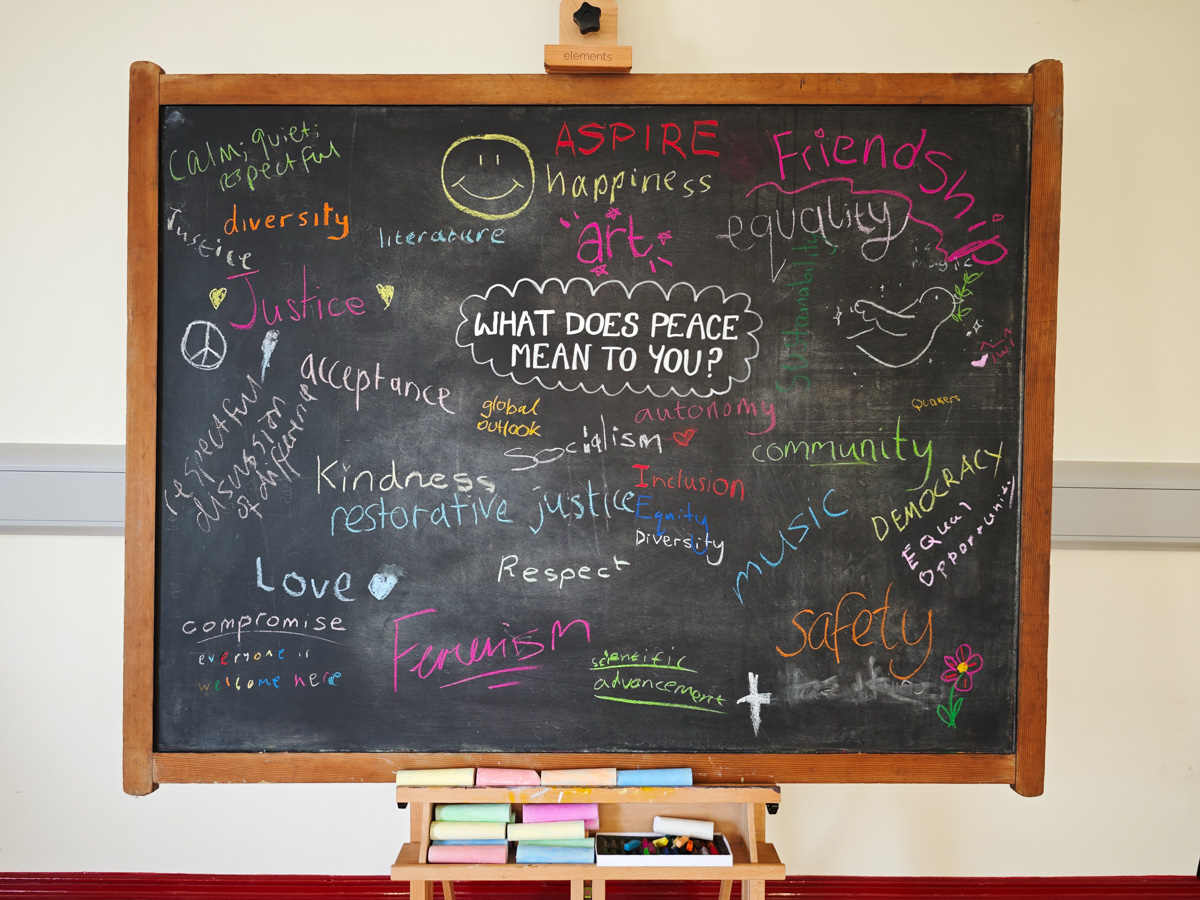 elements
calm; quiet;
respectful
ASPIRE
happiness
Friendship
Justice
diversity
literature
art
equality
Sustainability
Justice
WHAT DOES PEACE
MEAN TO YOU?
acceptance
global
outlook
autonomy
Quakers
socialism
community
respectful
discussion
of difference
Kindness
restorative justice
Inclusion
Equity
Diversity
music
DEMOCRACY
Equal
Opportunity
Love
Respect
compromise
everyone is
welcome here
Feminism
scientific
advancement
safety